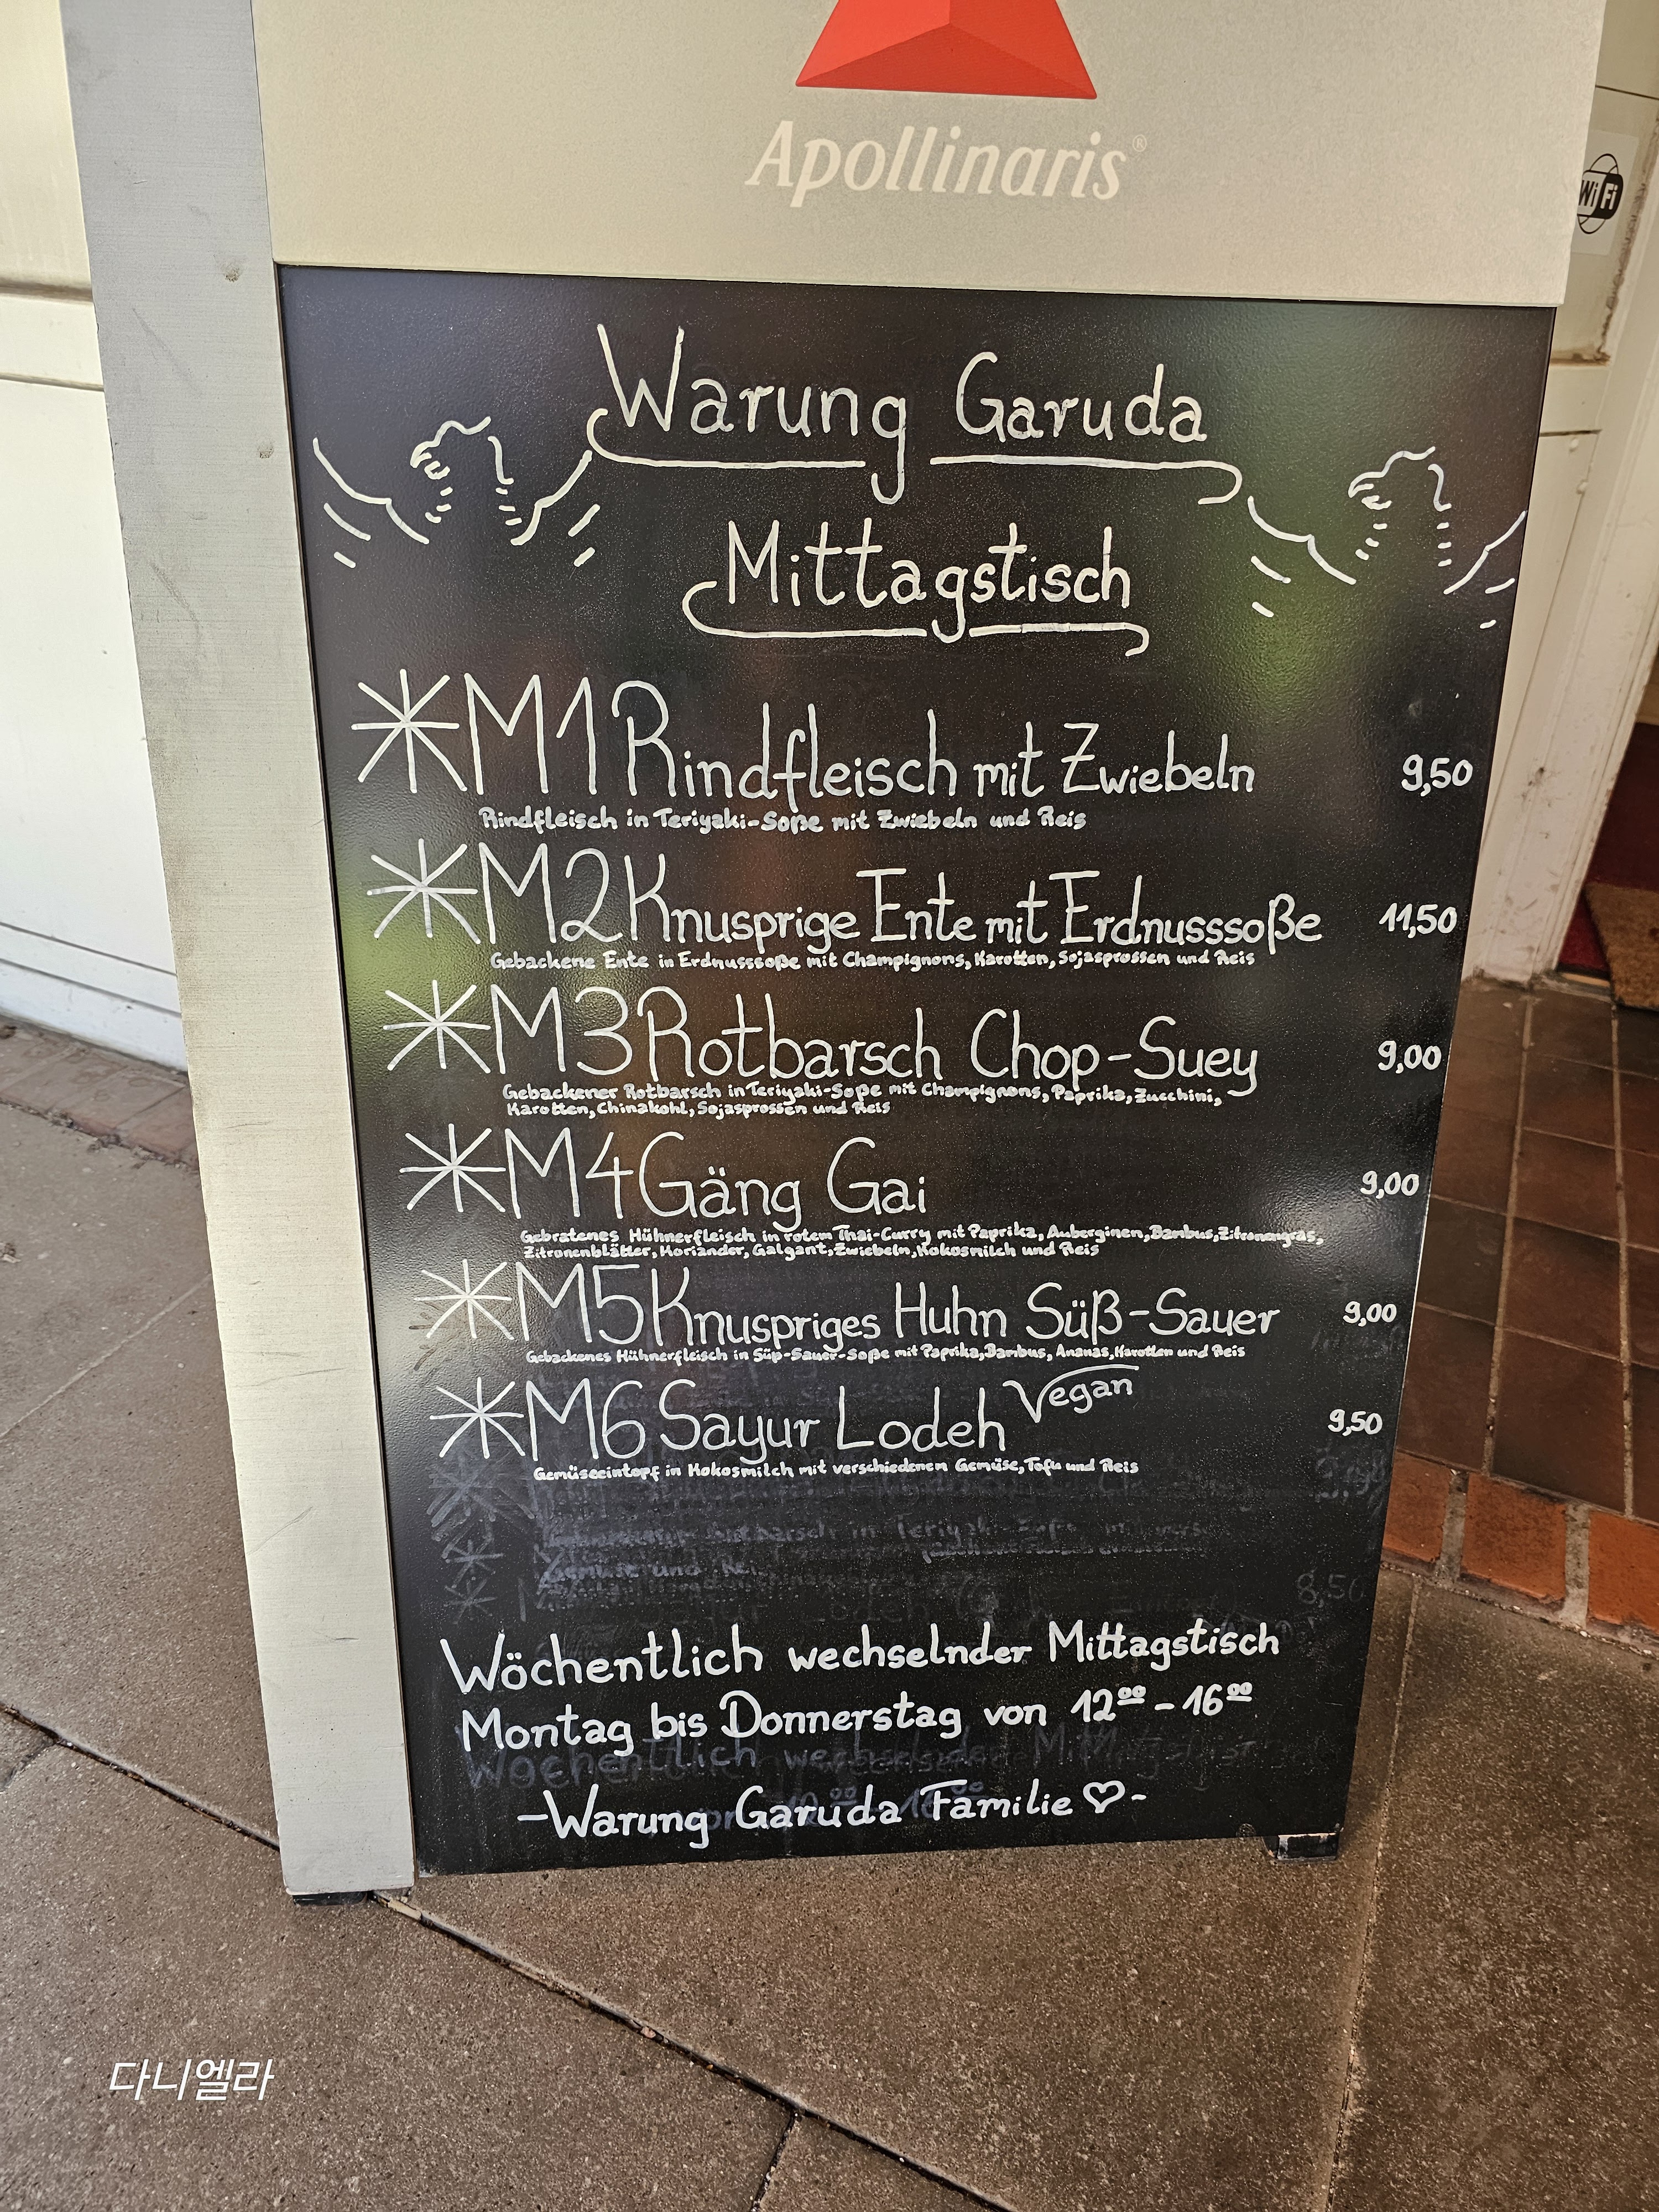 Apollinaris®
WiFi
Warung Garuda
Mittagstisch
*M1 Rindfleisch mit Zwiebeln 9,50
Rindfleisch in Teriyaki-Soße mit Zwiebeln und Reis
*M2 Knusprige Ente mit Erdnusssoße 11,50
Gebackene Ente in Erdnusssoße mit Champignons, Karotten, Sojasprossen und Reis
*M3 Rotbarsch Chop-Suey 9,00
Gebackener Rotbarsch in Teriyaki-Soße mit Champignons, Paprika, Zucchini,
Karotten, Chinakohl, Sojasprossen und Reis
*M4 Gäng Gai 9,00
Gebratenes Hühnerfleisch in rotem Thai-Curry mit Paprika, Auberginen, Bambus, Zitronengras,
Zitronenblätter, Koriander, Galgant, Zwiebeln, Kokosmilch und Reis
*M5 Knuspriges Huhn Süß-Sauer 9,00
Gebackenes Hühnerfleisch in Süß-Sauer-Soße mit Paprika, Bambus, Ananas, Karotten und Reis
*M6 Sayur Lodeh Vegan 9,50
Gemüseeintopf in Kokosmilch mit verschiedenen Gemüse, Tofu und Reis
8,50
Wöchentlich wechselnder Mittagstisch
Montag bis Donnerstag von 12⁰⁰ - 16⁰⁰
-Warung Garuda Familie ♡-
다니엘라